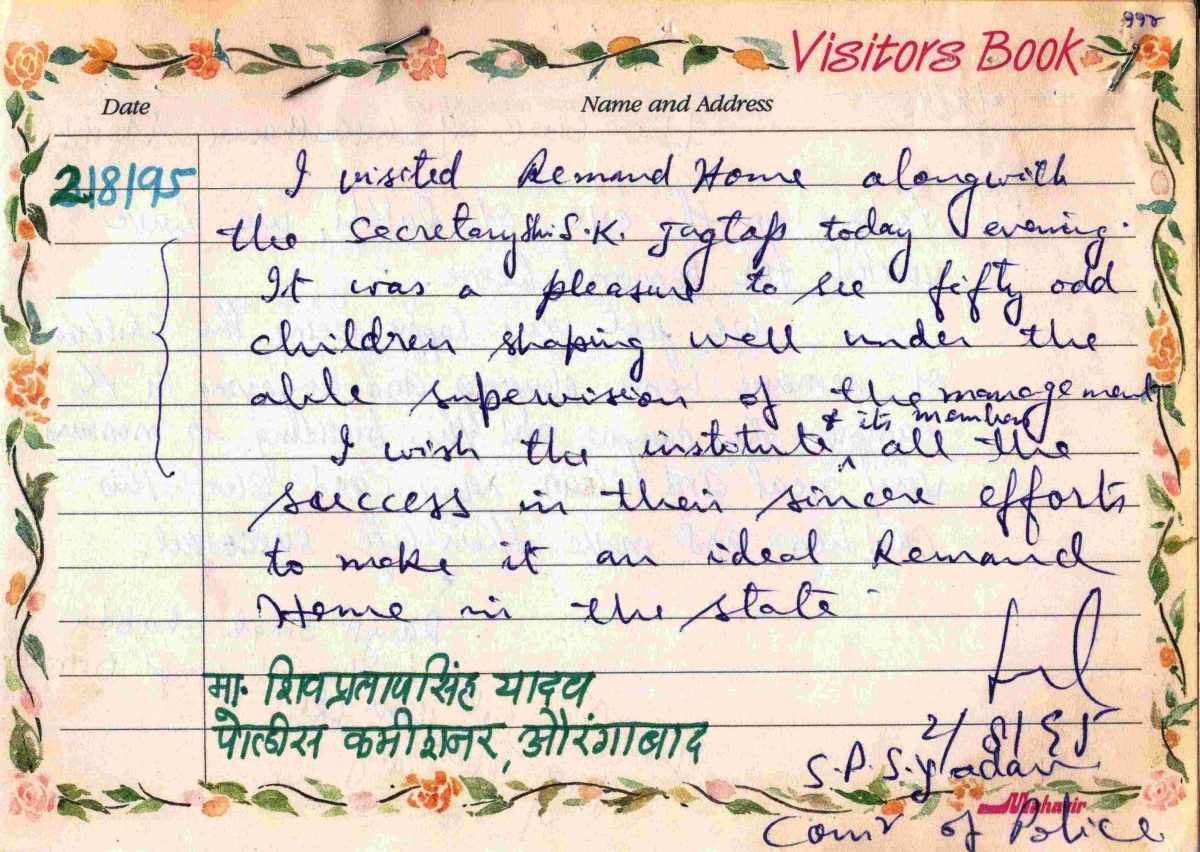 ११२
Visitors Book
Date Name and Address
2/8/95 I visited Remand Home alongwith
the Secretary Shri. S.K. Jagtap today evening.
It was a pleasure to see fifty odd
children shaping well under the
able supervision of the management
& its members
I wish the institute, all the
success in their sincere efforts
to make it an ideal Remand
Home in the state
मा. शिवप्रतापसिंह यादव
पोलीस कमीशनर, औरंगाबाद
२/८/९५
S.P.S. Yadav
Mahavir
Comr of Police